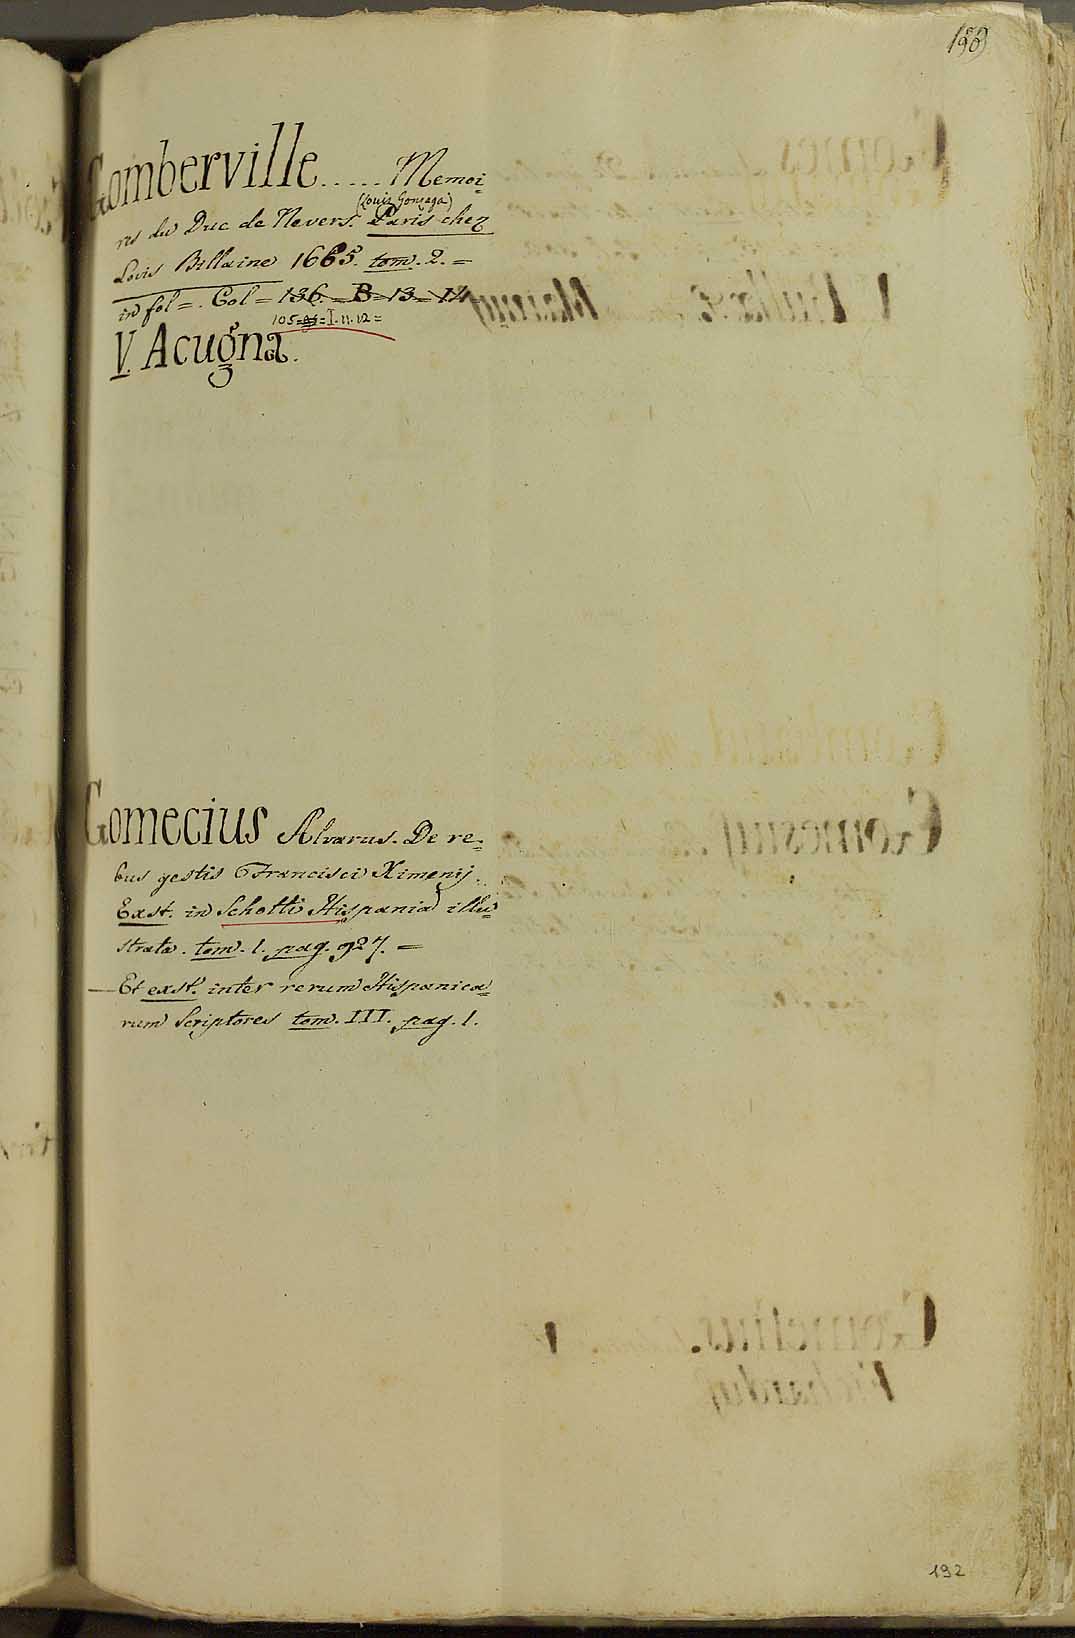 Gomberville ..... Memoi-
(Louis Gonzaga)
res du Duc de Nevers. Paris chez
Lovis Billaine 1665. tom. 2. =
in fol =. Col = 136. B = 13 = 14
105 = = I. 11. 12 =
V. Acugna.
Gomecius Alvarus. De re=
bus gestis Francisci Ximenij.
Exst. in Schotti Hispania illu=
strata. tom. 1. pag. 927. =
— Et exst. inter rerum Hispanica=
rum Scriptores tom. III. pag. 1.
192